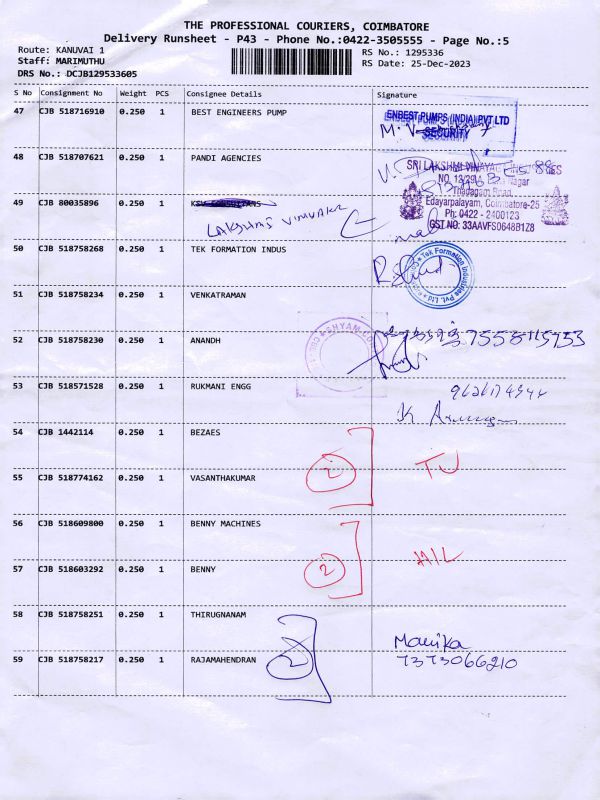 THE PROFESSIONAL COURIERS, COIMBATORE
Delivery Runsheet - P43 - Phone No.:0422-3505555 - Page No.:5
Route: KANUVAI 1
Staff: MARIMUTHU
DRS No.: DCJB129533605
RS No.: 1295336
RS Date: 25-Dec-2023
S No Consignment No Weight PCS Consignee Details Signature
47 CJB 518716910 0.250 1 BEST ENGINEERS PUMP
ENBEST PUMPS (INDIA) PVT LTD
SECURITY
48 CJB 518707621 0.250 1 PANDI AGENCIES
SRI LAKSHMI VINAYAGA
Thadagam Road
Edayarpalayam, Coimbatore-25
Ph: 0422 - 2400123
GST NO: 33AAVFS0648B1Z8
49 CJB 80035896 0.250 1
LAKSHMI VINAYAKA
50 CJB 518758268 0.250 1 TEK FORMATION INDUS
Tek Formation Industries Pvt. Ltd
51 CJB 518758234 0.250 1 VENKATRAMAN
52 CJB 518758230 0.250 1 ANANDH
SHYAM
53 CJB 518571528 0.250 1 RUKMANI ENGG
54 CJB 1442114 0.250 1 BEZAES
2 TU
55 CJB 518774162 0.250 1 VASANTHAKUMAR
56 CJB 518609800 0.250 1 BENNY MACHINES
2 HIL
57 CJB 518603292 0.250 1 BENNY
58 CJB 518758251 0.250 1 THIRUGNANAM
2 Monika
59 CJB 518758217 0.250 1 RAJAMAHENDRAN 7373066210